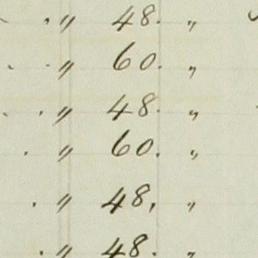 . " 48. "
. " 60. "
. . " 48. "
. " 60. "
. " 48. "
. " 48. "